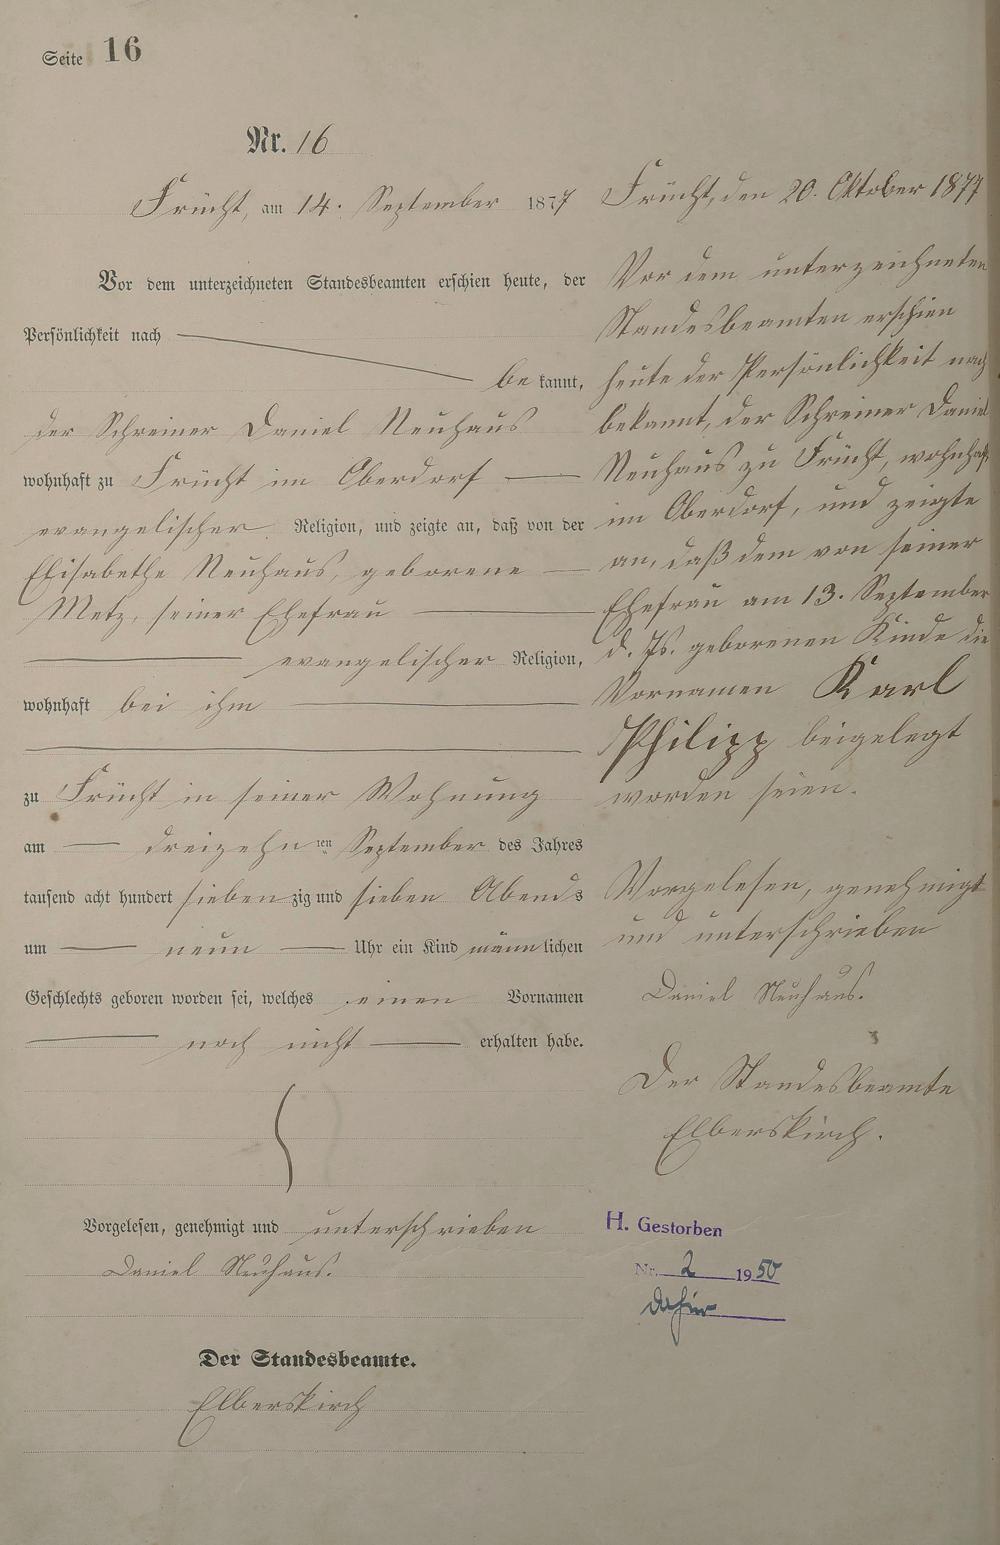 Seite 16
Nr. 16
Frücht, am 14. September 1877
Vor dem unterzeichneten Standesbeamten erschien heute, der
Persönlichkeit nach
be kannt,
der Schreiner Daniel Neuhaus
wohnhaft zu Frücht im Oberdorf
evangelischer Religion, und zeigte an, daß von der
Elisabethe Neuhaus, geborene
Metz, seiner Ehefrau
evangelischer Religion,
wohnhaft bei ihm
zu Frücht in seiner Wohnung
am dreizehn ten September des Jahres
tausend acht hundert sieben zig und sieben Abends
um neun Uhr ein Kind männlichen
Geschlechts geboren worden sei, welches einen Vornamen
noch nicht erhalten habe.
Vorgelesen, genehmigt und unterschrieben
Daniel Neuhaus.
Der Standesbeamte.
Elberskirch
Frücht, den 20. Oktober 1877
Vor dem unterzeichneten
Standesbeamten erschien
heute der Persönlichkeit nach
bekannt, der Schreiner Daniel
Neuhaus zu Frücht, wohnhaft
im Oberdorf, und zeigte
an, daß dem von seiner
Ehefrau am 13. September
d. Js. geborenen Kinde die
Vornamen Karl
Philipp beigelegt
worden seien.
Vorgelesen, genehmigt
und unterschrieben
Daniel Neuhaus.
Der Standesbeamte
Elberskirch.
H. Gestorben
Nr. 2 1950